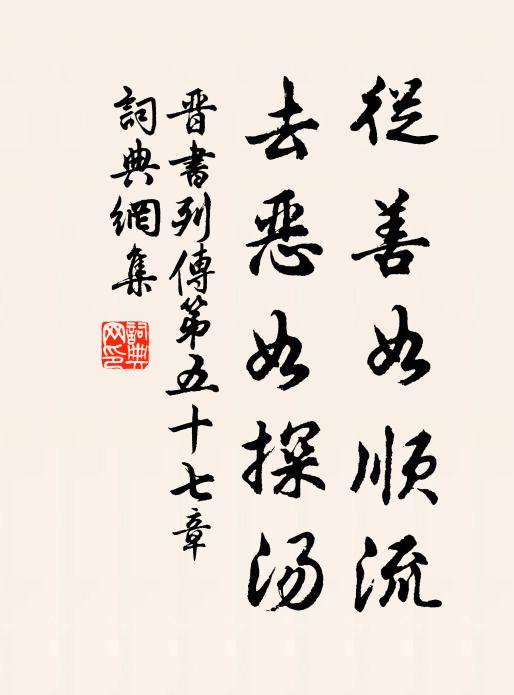 從善如順流
去惡如探湯
晉書列傳第五十七章
詞典網集
詞典網印